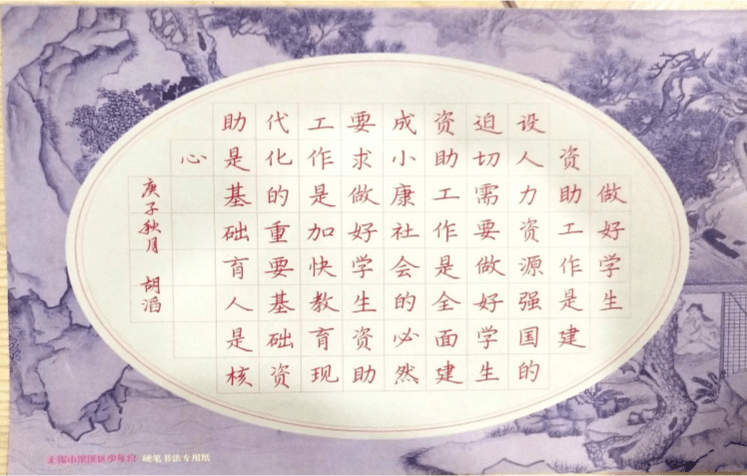 做好学生
资助工作是建
设人力资源强国的
迫切需要做好学生
资助工作是全面建
成小康社会的必然
要求做好学生资助
工作是加快教育现
代化的重要基础资
助是基础育人是核
心
庚子秋月 胡滔
无锡市 区少年宫 硬笔书法专用纸